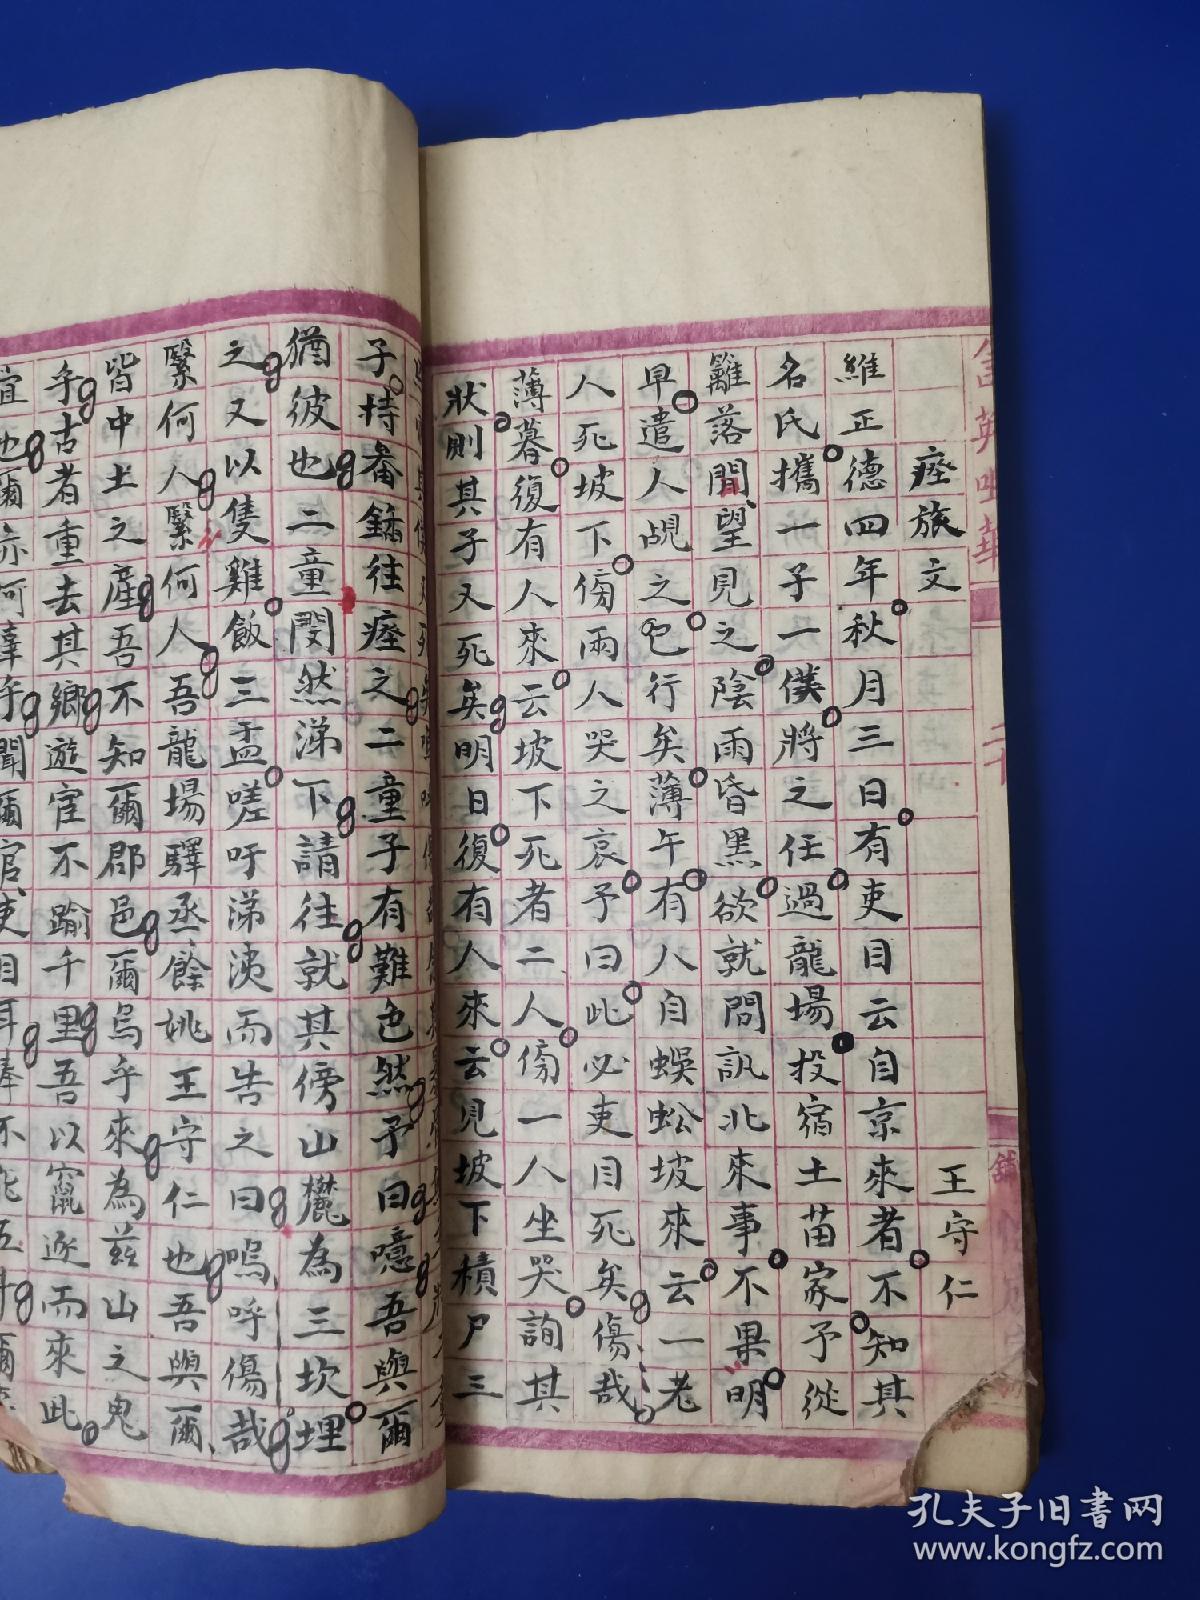 瘞旅文
王守仁
維正德四年秋月三日有吏目云自京來者不知其
名氏攜一子一僕將之任過龍場投宿土苗家予從
籬落間望見之陰雨昏黑欲就問訊北來事不果明
早遣人覘之已行矣薄午有人自蜈蚣坡來云一老
人死坡下傍兩人哭之哀予曰此必吏目死矣傷哉
薄暮復有人來云坡下死者二人傍一人坐哭詢其
狀則其子又死矣明日復有人來云見坡下積尸三
子持畚鍤往瘞之二童子有難色然予曰噫吾與爾
猶彼也二童閔然涕下請往就其傍山麓為三坎埋
之又以隻雞飯三盂嗟吁涕洟而告之曰嗚呼傷哉
繄何人繄何人吾龍場驛丞餘姚王守仁也吾與爾
皆中土之產吾不知爾郡邑爾烏乎來為茲山之鬼
乎古者重去其鄉遊宦不踰千里吾以竄逐而來此
宜也爾亦何辜乎聞爾官吏目耳俸不能五斗爾
孔夫子旧书网
www.kongfz.com